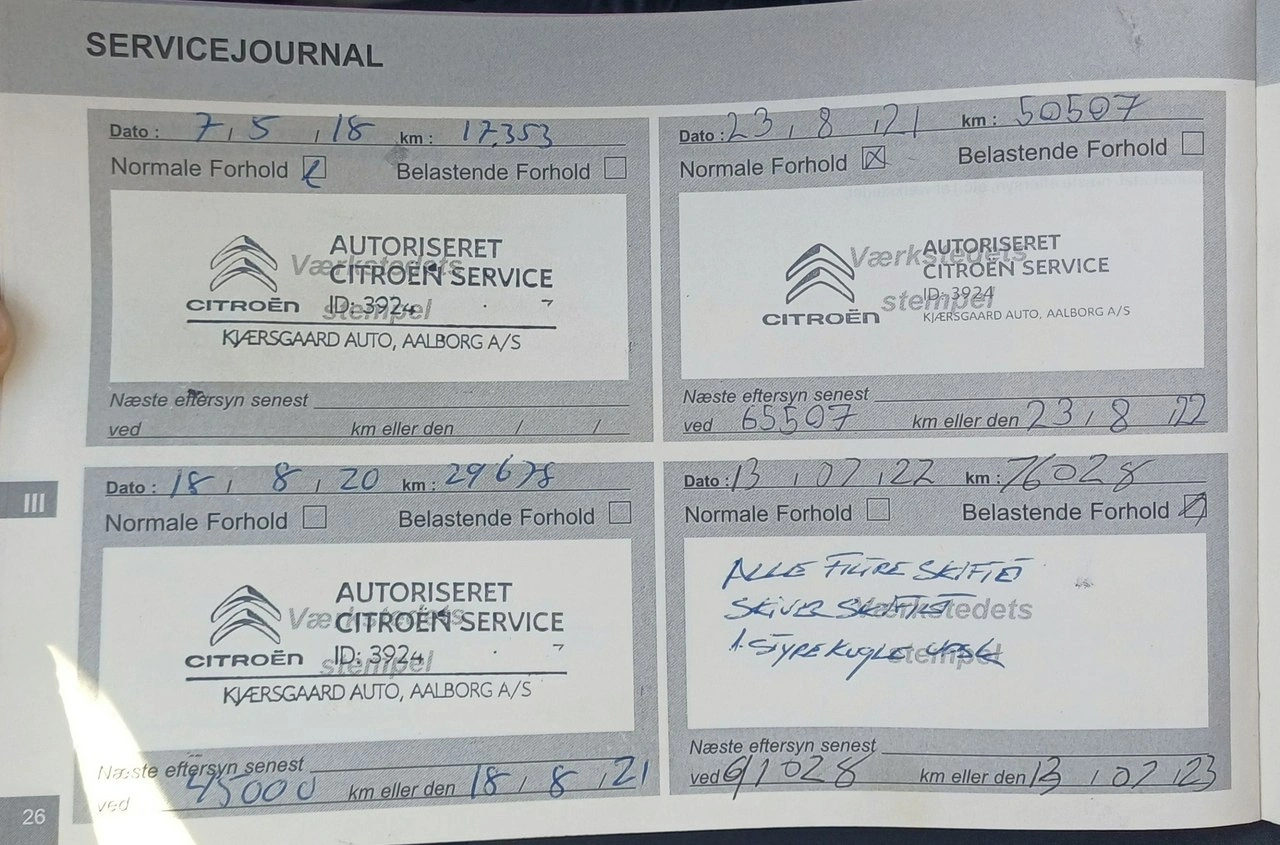 SERVICEJOURNAL
Dato : 7 / 5 / 18 km : 17.353
Normale Forhold Belastende Forhold
Værkstedets stempel
AUTORISERET
CITROËN SERVICE
CITROËN ID: 3924
KJÆRSGAARD AUTO, AALBORG A/S
Næste eftersyn senest
ved km eller den / /
Dato : 23 / 8 / 21 km : 50507
Normale Forhold Belastende Forhold
Værkstedets stempel
AUTORISERET
CITROËN SERVICE
ID: 3924
CITROËN KJÆRSGAARD AUTO, AALBORG A/S
Næste eftersyn senest
ved 65507 km eller den 23 / 8 / 22
Dato : 18 / 8 / 20 km : 29678
Normale Forhold Belastende Forhold
Værkstedets stempel
AUTORISERET
CITROËN SERVICE
CITROËN ID: 3924
KJÆRSGAARD AUTO, AALBORG A/S
Næste eftersyn senest
ved 45000 km eller den 18 / 8 / 21
Dato : 13 / 07 / 22 km : 76028
Normale Forhold Belastende Forhold
Værkstedets stempel
ALLE FILTRE SKIFTET
SKIVER SKIFTET
1. STYREKUGLE
Næste eftersyn senest
ved 91028 km eller den 13 / 07 / 23
III
26